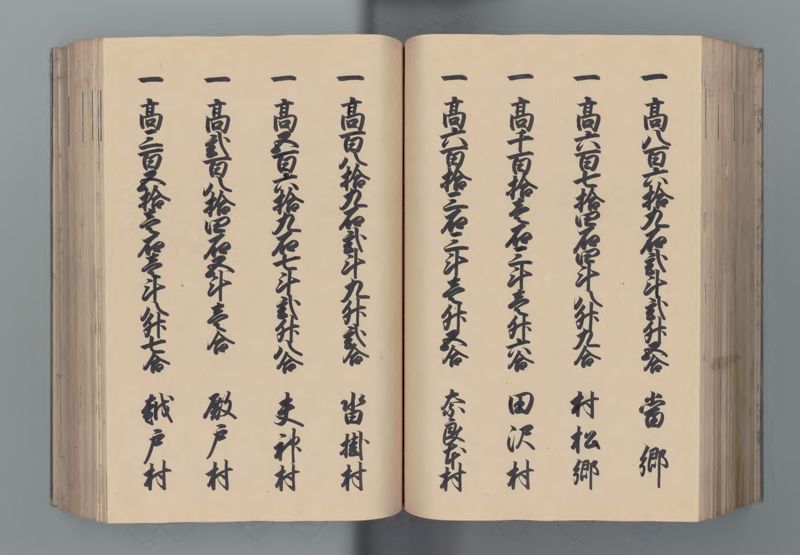 一 高八百六拾九石弐斗弐升五合 當郷
一 高六百七拾四石四斗八升九合 村松郷
一 高千百拾壱石三斗壱升六合 田沢村
一 高六百拾三石三斗壱升五合 奈良本村
一 高百八拾九石弐斗九升弐合 沓掛村
一 高五百六拾九石七斗弐升八合 夫神村
一 高弐百八拾四石五斗壱合 殿戸村
一 高三百五拾壱石壱斗八升七合 越戸村